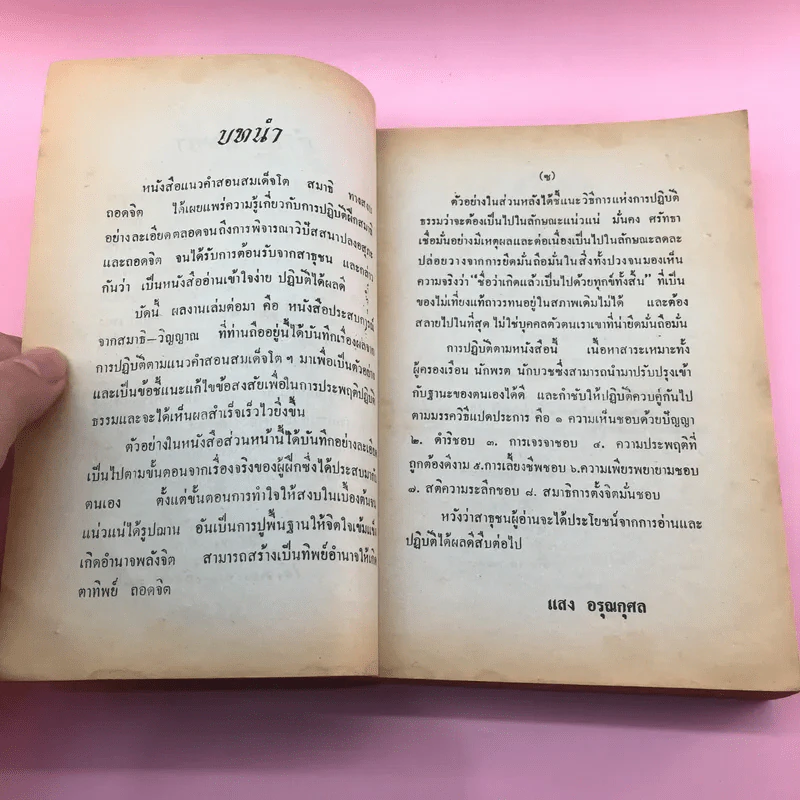 บทนำ
หนังสือแนวคำสอนสมเด็จโต สมาธิ ทางสงบ
ถอดจิต ได้เผยแพร่ความรู้เกี่ยวกับการปฏิบัติฝึกสมาธิ
อย่างละเอียดตลอดจนถึงการพิจารณาวิปัสสนาปลงอสุภะ
และถอดจิต จนได้รับการต้อนรับจากสาธุชน และกล่าว
กันว่า เป็นหนังสืออ่านเข้าใจง่าย ปฏิบัติได้ผลดี
บัดนี้ ผลงานเล่มต่อมา คือ หนังสือประสบการณ์
จากสมาธิ–วิญญาณ ที่ท่านถืออยู่นี้ได้บันทึกเรื่องผลจาก
การปฏิบัติตามแนวคำสอนสมเด็จโต ๆ มาเพื่อเป็นตัวอย่าง
และเป็นข้อชี้แนะแก้ไขข้อสงสัยเพื่อในการประพฤติปฏิบัติ
ธรรมและจะได้เห็นผลสำเร็จเร็วไวยิ่งขึ้น
ตัวอย่างในหนังสือส่วนหน้านี้ได้บันทึกอย่างละเอียด
เป็นไปตามขั้นตอนจากเรื่องจริงของผู้ฝึกซึ่งได้ประสบมากับ
ตนเอง ตั้งแต่ขั้นตอนการทำใจให้สงบในเบื้องต้นจน
แน่วแน่ได้รูปฌาน อันเป็นการปูพื้นฐานให้จิตใจเข้มแข็ง
เกิดอำนาจพลังจิต สามารถสร้างเป็นทิพย์อำนาจให้เกิด
ตาทิพย์ ถอดจิต
(ซ)
ตัวอย่างในส่วนหลังได้ชี้แนะวิธีการแห่งการปฏิบัติ
ธรรมว่าจะต้องเป็นไปในลักษณะแน่วแน่ มั่นคง ศรัทธา
เชื่อมั่นอย่างมีเหตุผลและต่อเนื่องเป็นไปในลักษณะลดละ
ปล่อยวางจากการยึดมั่นถือมั่นในสิ่งทั้งปวงจนมองเห็น
ความจริงว่า "ชื่อว่าเกิดแล้วเป็นไปด้วยทุกข์ทั้งสิ้น" ที่เป็น
ของไม่เที่ยงแท้ถาวรทนอยู่ในสภาพเดิมไม่ได้ และต้อง
สลายไปในที่สุด ไม่ใช่บุคคลตัวตนเราเขาที่น่ายึดมั่นถือมั่น
การปฏิบัติตามหนังสือนี้ เนื้อหาสาระเหมาะทั้ง
ผู้ครองเรือน นักพรต นักบวชซึ่งสามารถนำมาปรับปรุงเข้า
กับฐานะของตนเองได้ดี และกำชับให้ปฏิบัติควบคู่กันไป
ตามมรรควิธีแปดประการ คือ ๑ ความเห็นชอบด้วยปัญญา
๒. ดำริชอบ ๓. การเจรจาชอบ ๔. ความประพฤติที่
ถูกต้องดีงาม ๕.การเลี้ยงชีพชอบ ๖.ความเพียรพยายามชอบ
๗. สติความระลึกชอบ ๘. สมาธิการตั้งจิตมั่นชอบ
หวังว่าสาธุชนผู้อ่านจะได้ประโยชน์จากการอ่านและ
ปฏิบัติได้ผลดีสืบต่อไป
แสง อรุณกุศล